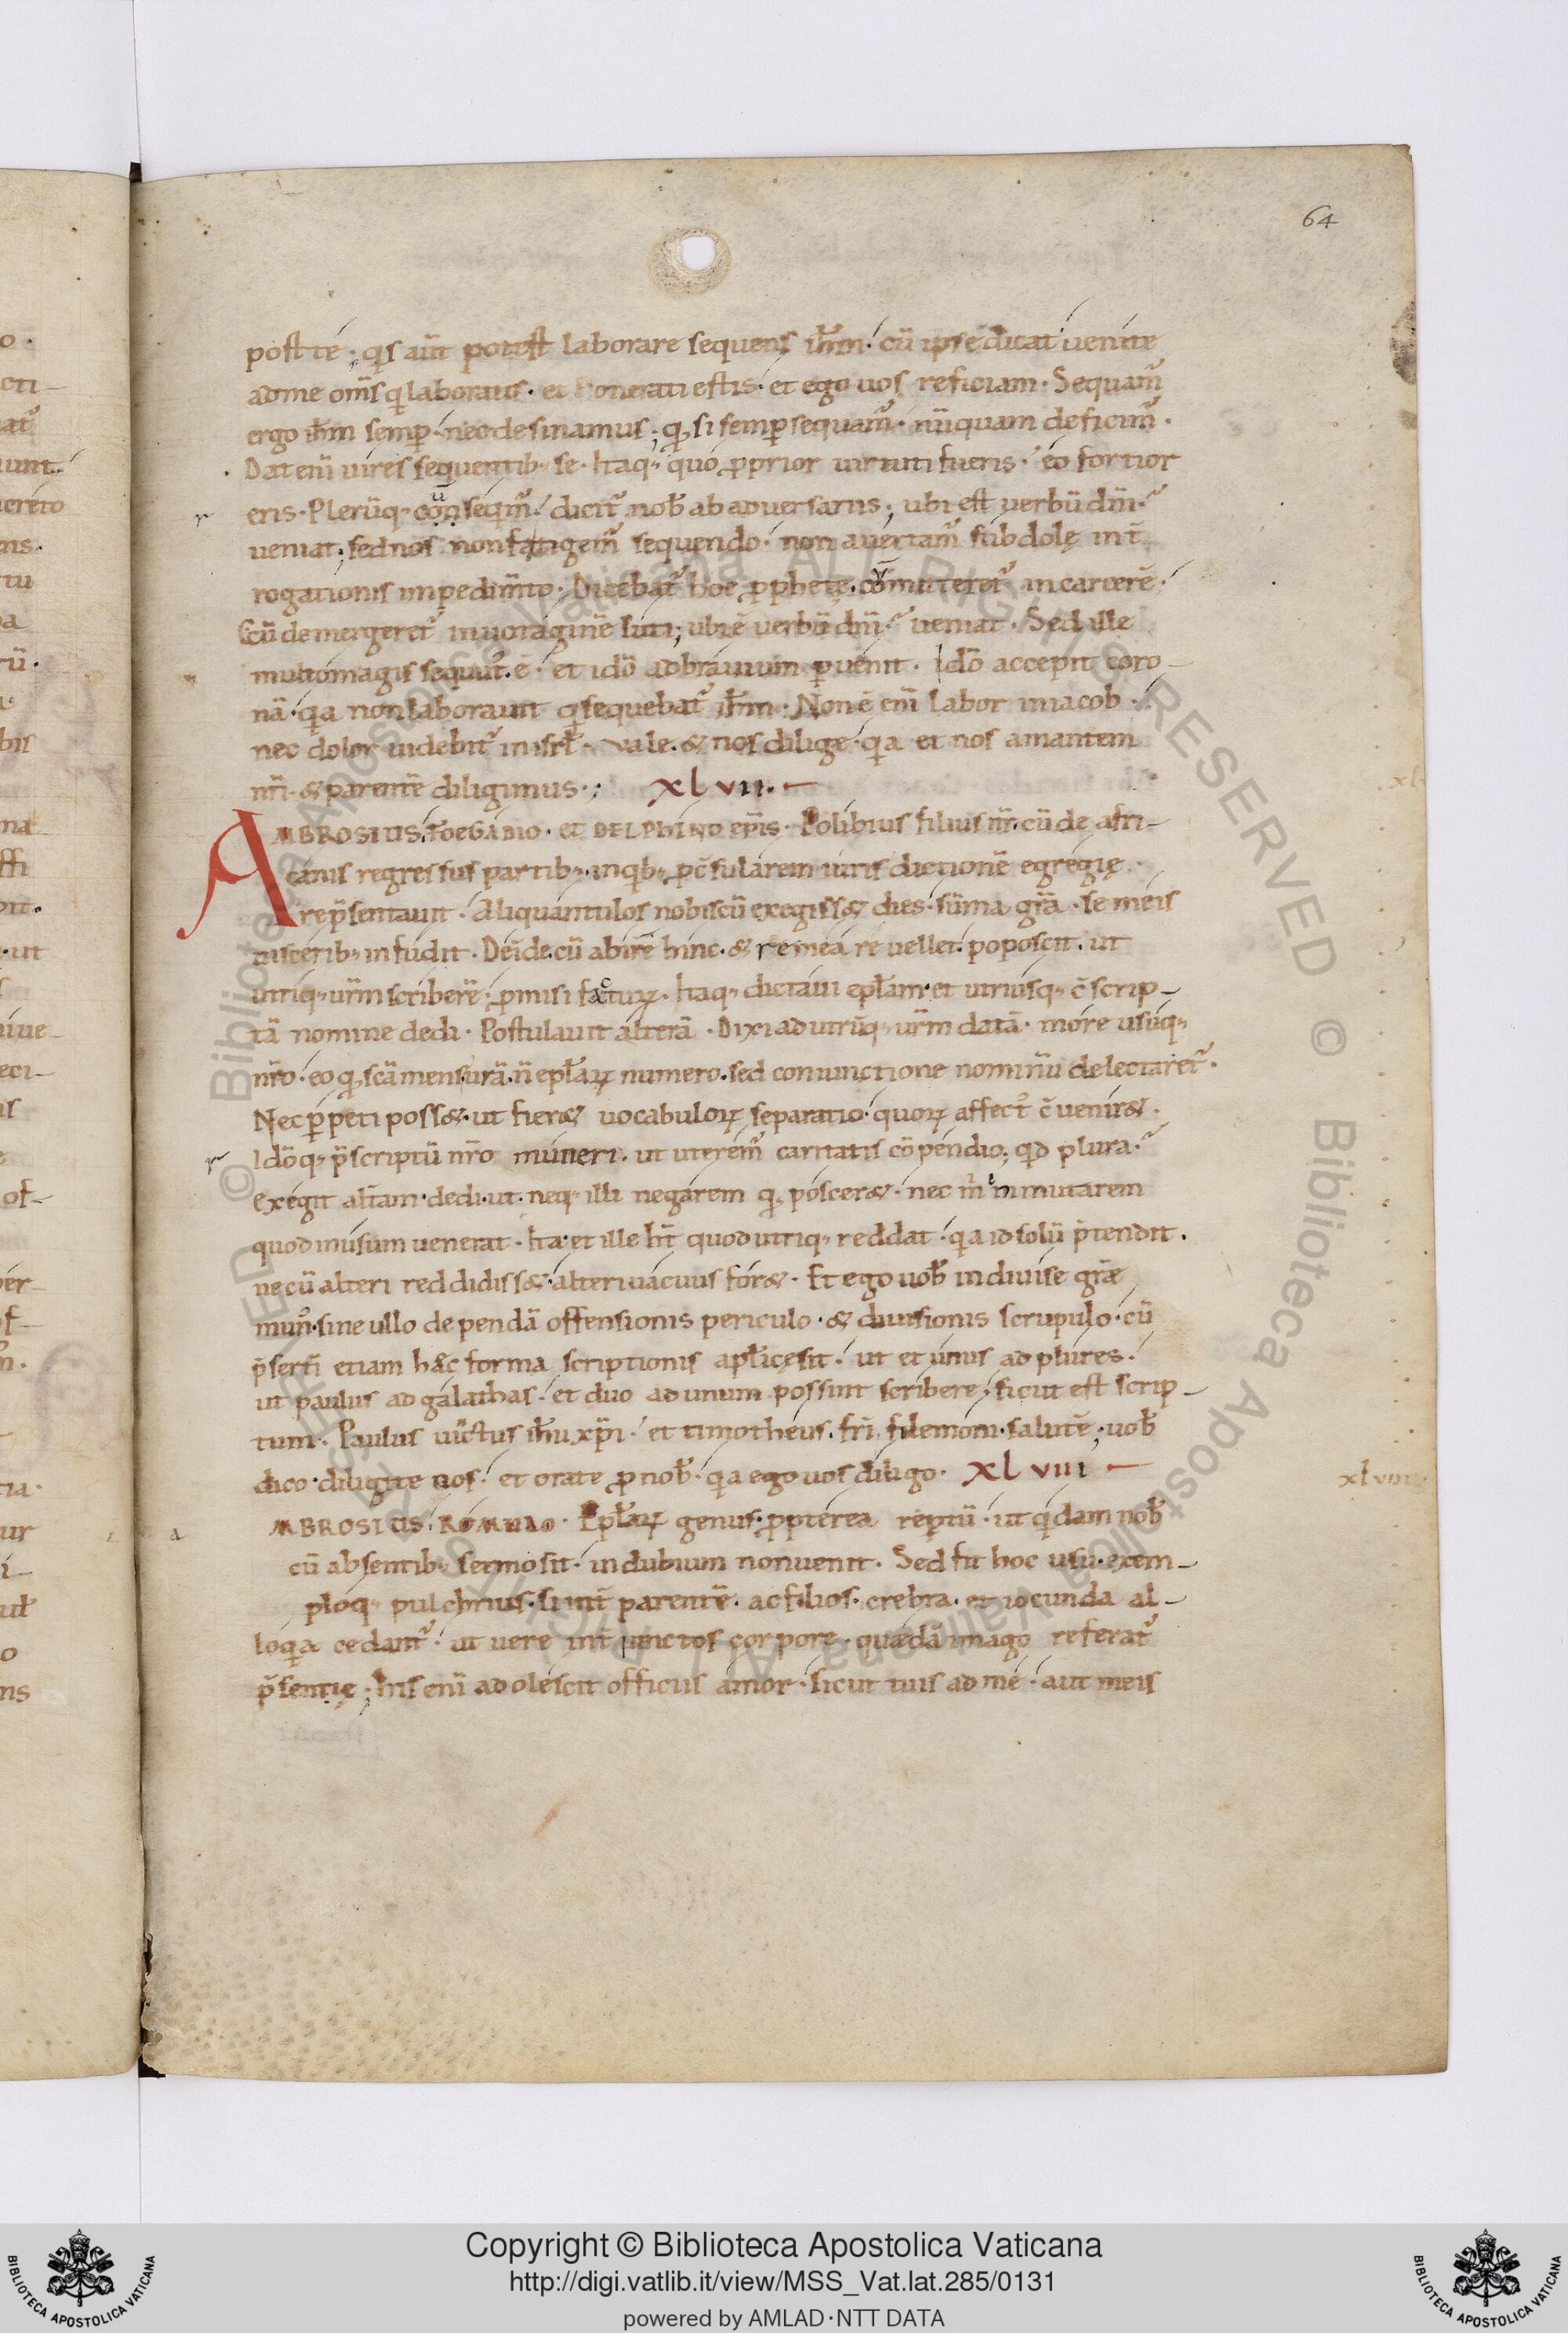 64
post te ; qıs aut̄ potest laborare sequens ih̄m · cū ipse dicat uenite
ad me om̄s qı laboratis · et honerati estis · et ego uos reficiam · Sequam̃
ergo ih̄m semp̱ · nec desinamus ; qꝫ si semp̱ sequam̃ · nūquam deficim̃ ·
Dat eni̅ uires sequentibꝫ se · Itaqꝫ quo ꝓprior uirtuti fueris · eo fortior
eris · Plerūqꝫ con seqim̃ · dicit̃ nob̄ ab aduersariis ; ubi est uerbū dn̄i ·
ueniat ; sed nos non fatigem̃ sequendo · non auertam̃ subdolę int̄
rogationis impedim̄to · Dicebat̃ hoc ꝓphetę · cū mitteret̃ in carcerē ·
cū demergeret̃ in uoraginē luti ; ubi ē uerbū dn̄i · ueniat · Sed ille
multo magis sequut̃ · ē · et idō ad brauium ꝑuenit · Idō accepit coro-
nā · qıa non laborauit qı sequebat̃ ih̄m · Non ē eni̅ labor in iacob ·
nec dolor uidebit̃ in isrł · Vale · & nos dilige · qıa et nos amantem
nr̄i · & parentē diligimus · ; xlvii ·
AMBROSIUS, FOEGADIO · et DELPHINO ep̄is · Polibius filius nr̄ · cū de afri-
canis regressus partibꝫ · in qıbꝫ ꝓc̄sularem iurisdictionē egregię ·
rep̄sentauit · Aliquantulos nobiscū exegiss& dies · sūma gr̄a · se meis
uisceribꝫ infudit · Deīde · cū abire hinc · & remeare uellet · poposcit · ut
utriqꝫ ur̄m scriberē ; ꝓmisi facturꝝ · Itaqꝫ dictaui epłam · et utriusqꝫ c̄scrip-
tā nomine dedi · Postulauit alterā · Dixi ad utrūqꝫ ur̄m datā · more usuqꝫ
nr̄o · eo qꝫ sc̄a mensurā · n̄ epłarꝝ numero · sed coniunctione nominū delectaret̃ ·
Nec ꝑpeti poss& · ut fier& uocabulorꝝ separatio · quorꝝ affect̃ c̄uenir& ·
Idōqꝫ p̄scriptū nr̄o muneri · ut uterem̃ caritatis cōpendio ; qıd plura ·
Exegit alt̄am · dedi · ut · neqꝫ illi negarem qꝫ poscer& · nec m̄ immutarem
quod in usum uenerat · Ita · et ille ht̄ quod utriqꝫ reddat · qıa id solū p̄tendit ·
ne cū alteri reddidiss& · alteri uacuus for& · Et ego uob̄ indiuise gr̄æ
mun̄ · sine ullo dependā offensionis periculo · & diuisionis scrupulo · cū
p̄serti̅ etiam hæc forma scriptionis apłicę sit · ut et unus ad plures ·
ut paulus ad galathas · et duo ad unum possint scribere ; sicut est scrip-
tum · Paulus uinctus ih̄u xp̄i · et timotheus · fr̄i · filemoni · salutē ; uob̄
dico · diligite nos · et orate ꝓ nob̄ · qıa ego uos diligo · xlviii
xlviii
a
MBROSIUS, ROMULO · Epłarꝝ genus · ꝓpterea rep̱tū · ut qıdam nob̄
cū absentibꝫ sermo sit · in dubium non uenit · Sed fit hoc usu · exem-
ploqꝫ pulchrius · si int̄ parentē · ac filios · crebra · et iocunda al-
loqıa cedant̃ · ut uere int̄ iunctos corpore · quædā imago referat̃
p̄sentię ; His eni̅ adolescit officiis amor · sicut tuis ad me · aut meis
Copyright © Biblioteca Apostolica Vaticana
http://digi.vatlib.it/view/MSS_Vat.lat.285/0131
powered by AMLAD·NTT DATA